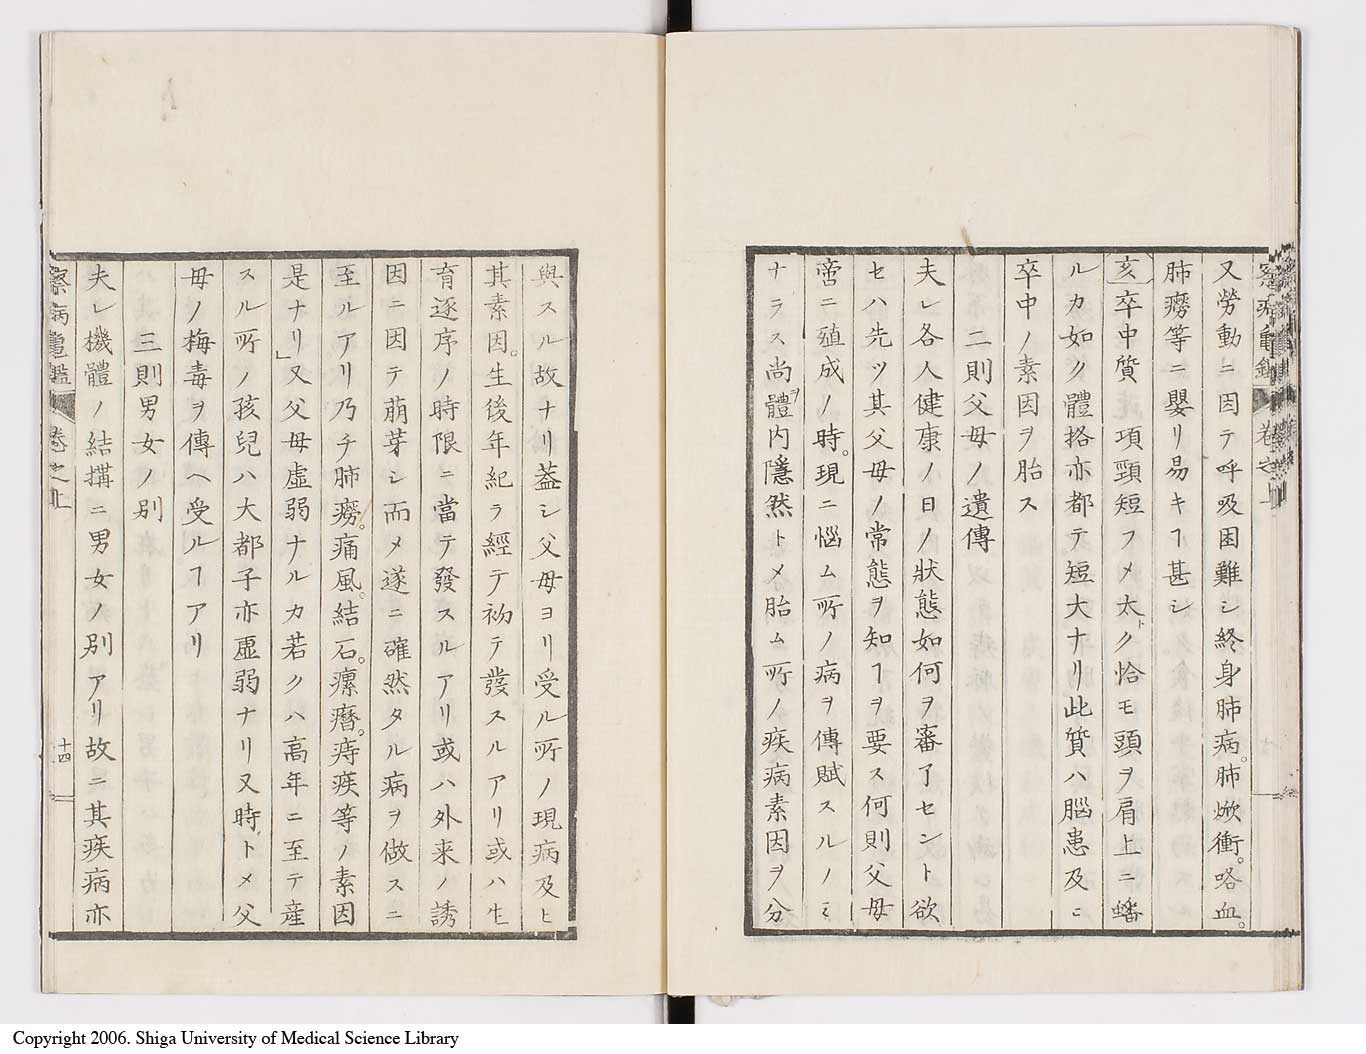 又勞動ニ因テ呼吸困難シ終身肺病。肺焮衝。咯血。
肺癆等ニ嬰リ易キヿ甚シ
亥 卒中質 項頸短フメ太トク恰モ頭ヲ肩上ニ蟠
ルカ如ク體挌亦都テ短大ナリ此質ハ腦患及ニ
卒中ノ素因ヲ胎ス
二則父母ノ遺傳
夫レ各人健康ノ日ノ狀態如何ヲ審了セント欲
セハ先ツ其父母ノ常態ヲ知ヿヲ要ス何則父母
啻ニ殖成ノ時。現ニ惱ム所ノ病ヲ傳賦スルノミ
ナラス尚ヲ體内隱然トメ胎ム所ノ疾病素因ヲ分
察病亀鑑 卷之上
與スル故ナリ蓋シ父母ヨリ受ル所ノ現病及ヒ
其素因。生後年紀ラ經テ初テ發スルアリ或ハ生
育逐序ノ時限ニ當テ發スルアリ或ハ外来ノ誘
因ニ因テ萠芽シ而メ遂ニ確然タル病ヲ做スニ
至ルアリ乃チ肺癆。痛風。結石。瘰癧。痔疾等ノ素因
是ナリ」又父母虛弱ナルカ若クハ高年ニ至テ産
スル所ノ孩兒ハ大都子亦虛弱ナリ又時トメ父
母ノ梅毒ヲ傳ヘ受ルヿアリ
三則男女ノ別
夫レ機體ノ結搆ニ男女ノ別アリ故ニ其疾病亦
察病亀鑑 卷之上 十四
Copyright 2006. Shiga University of Medical Science Library